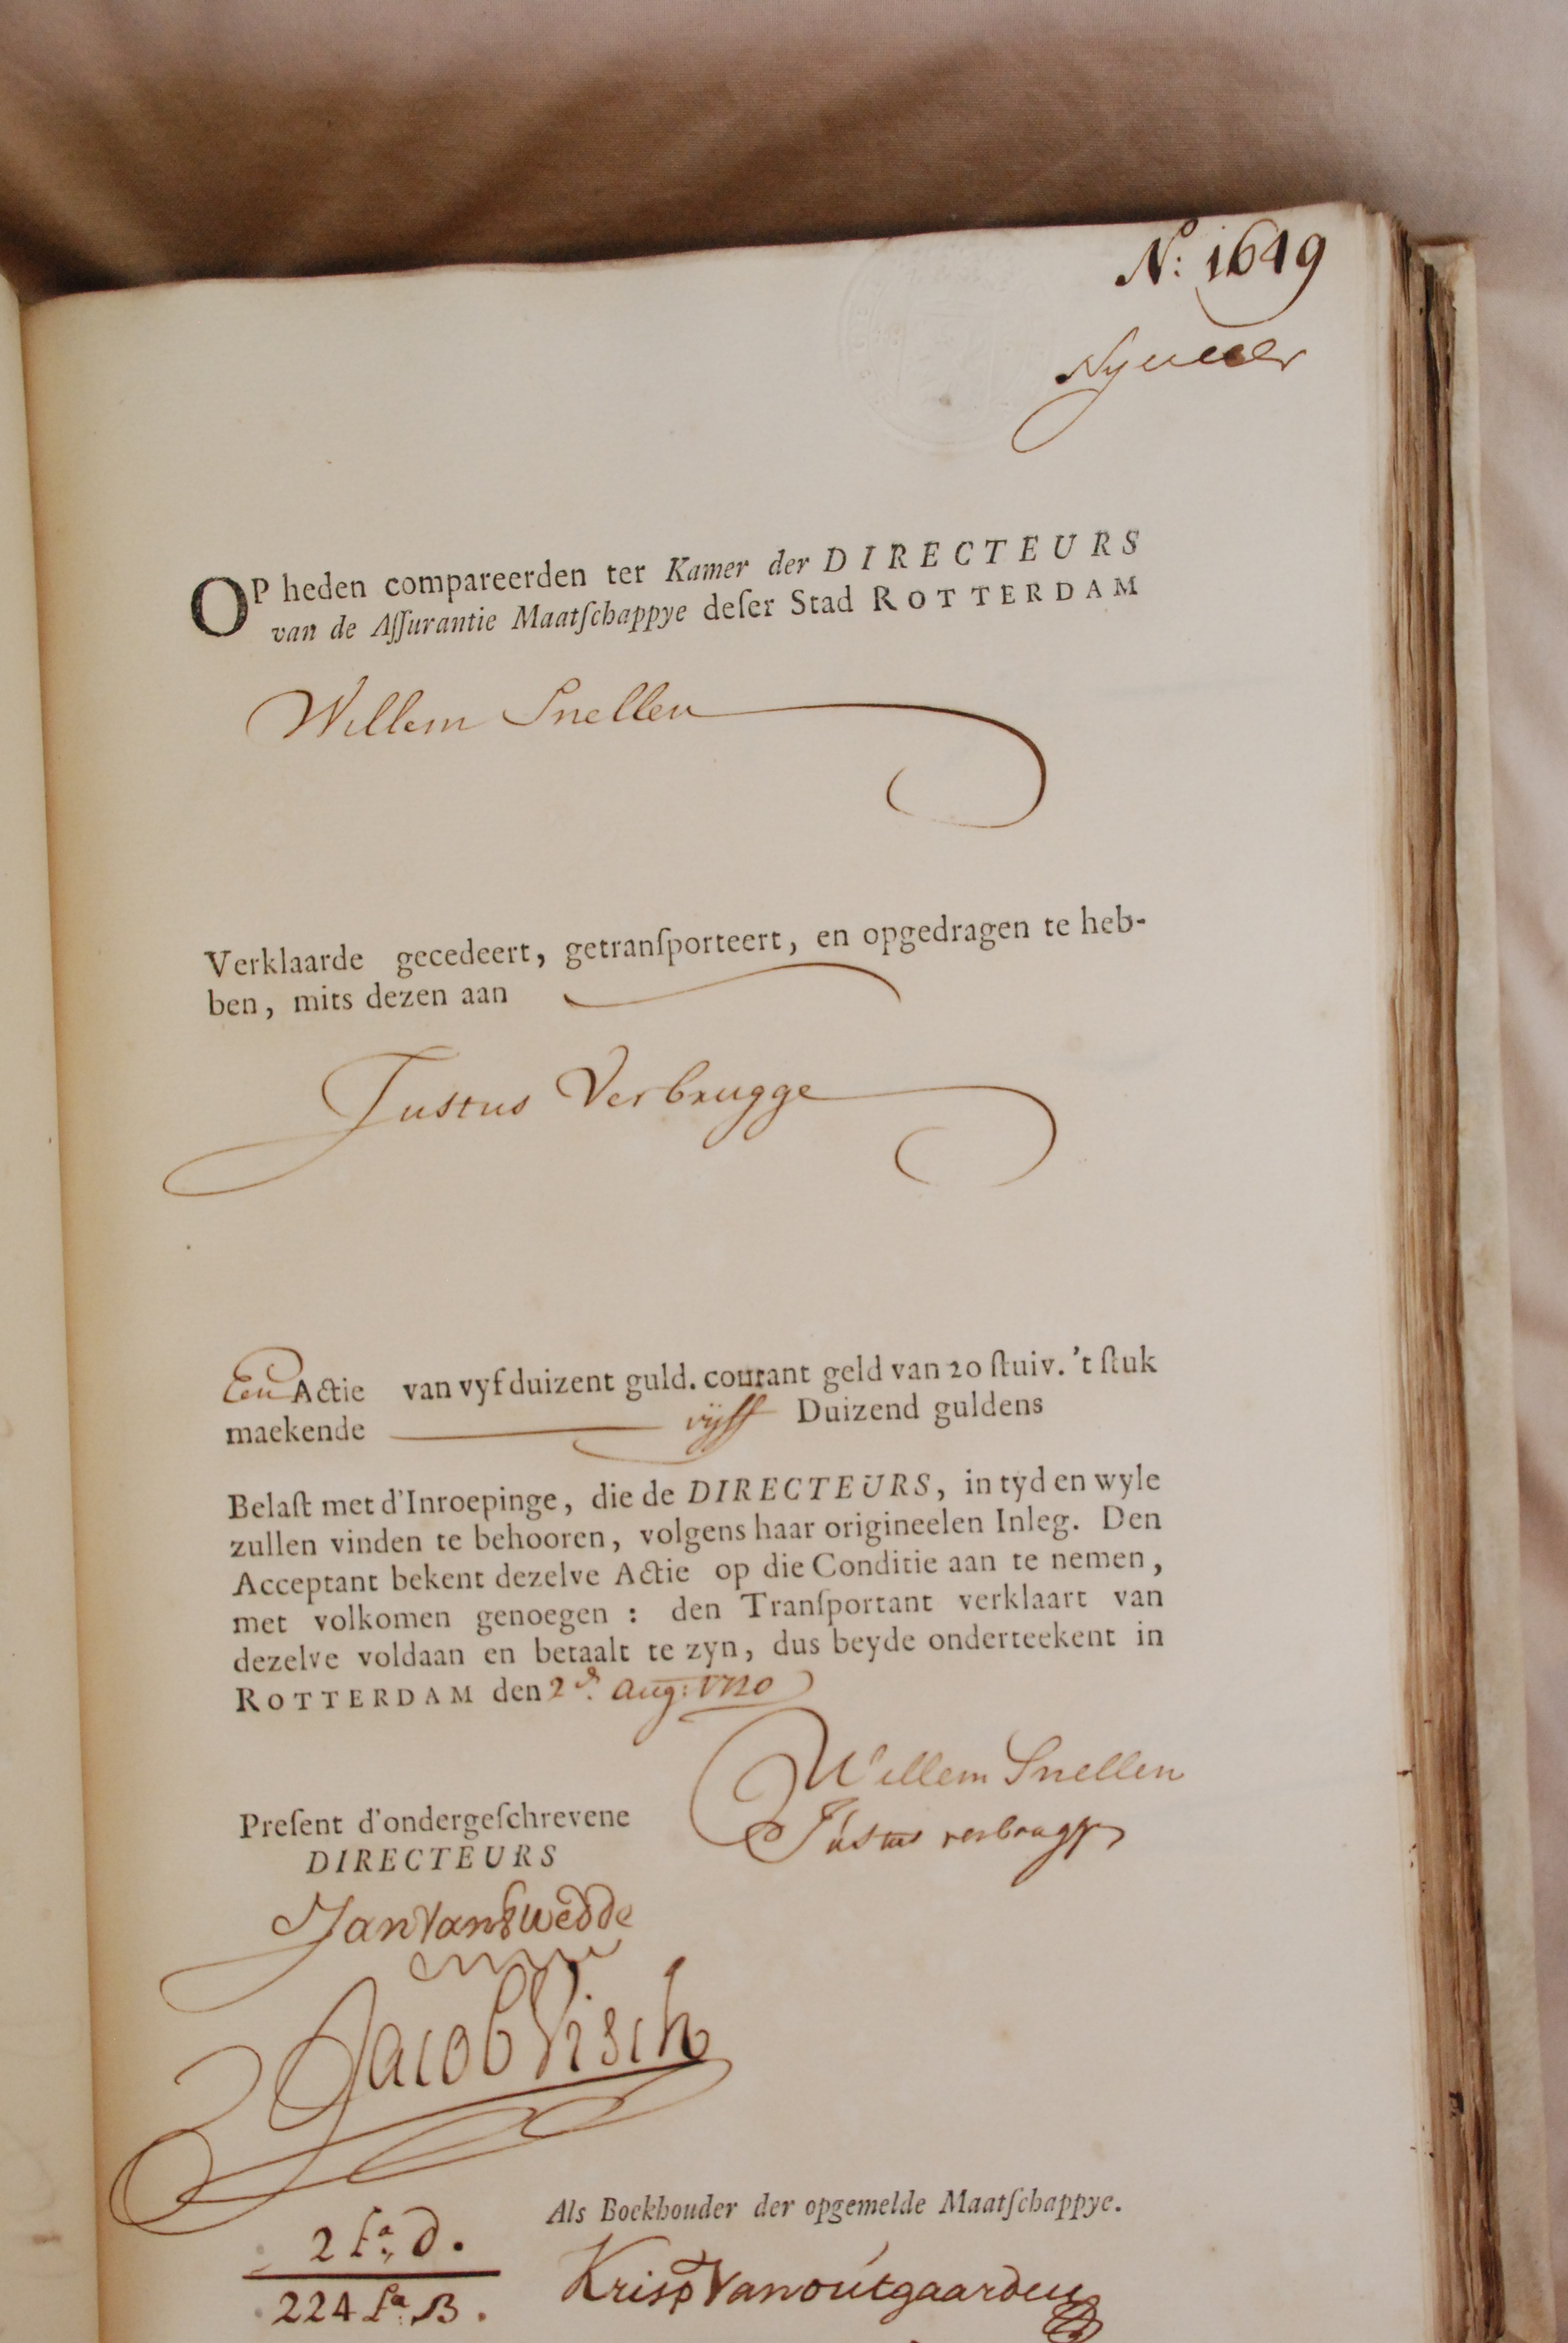 No: 1649
OP heden compareerden ter Kamer der DIRECTEURS
van de Aſſurantie Maatſchappye deſer Stad ROTTERDAM
Willem Snellen
Verklaarde gecedeert, getranſporteert, en opgedragen te heb-
ben, mits dezen aan
Justus Verbrugge
Een Actie van vyfduizent guld. courant geld van 20 ſtuiv. 't ſtuk
maekende vijff Duizend guldens
Belaſt met d'Inroepinge, die de DIRECTEURS, in tyd en wyle
zullen vinden te behooren, volgens haar origineelen Inleg. Den
Acceptant bekent dezelve Actie op die Conditie aan te nemen,
met volkomen genoegen : den Tranſportant verklaart van
dezelve voldaan en betaalt te zyn, dus beyde onderteekent in
ROTTERDAM den 2d. Aug: 1720
Willem Snellen
Justus verbrugge
Preſent d'ondergeſchrevene
DIRECTEURS
Jan Van Swedde
Jacob Visch
Als Boekhouder der opgemelde Maatſchappye.
2 fa. d.
224 fa. B.
Krisp Vanoutgaarden